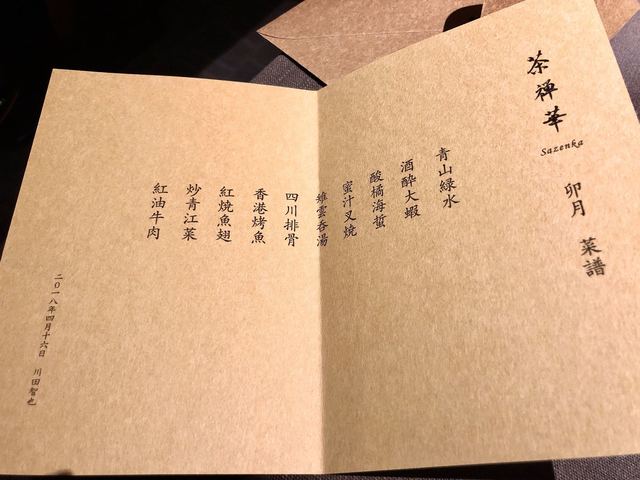 茶禅華
Sazenka
卯月 菜譜
青山緑水
酒酔大蝦
酸橘海蜇
蜜汁叉焼
雉雲呑湯
四川排骨
香港烤魚
紅焼魚翅
炒青江菜
紅油牛肉
二〇一八年四月十六日 川田智也